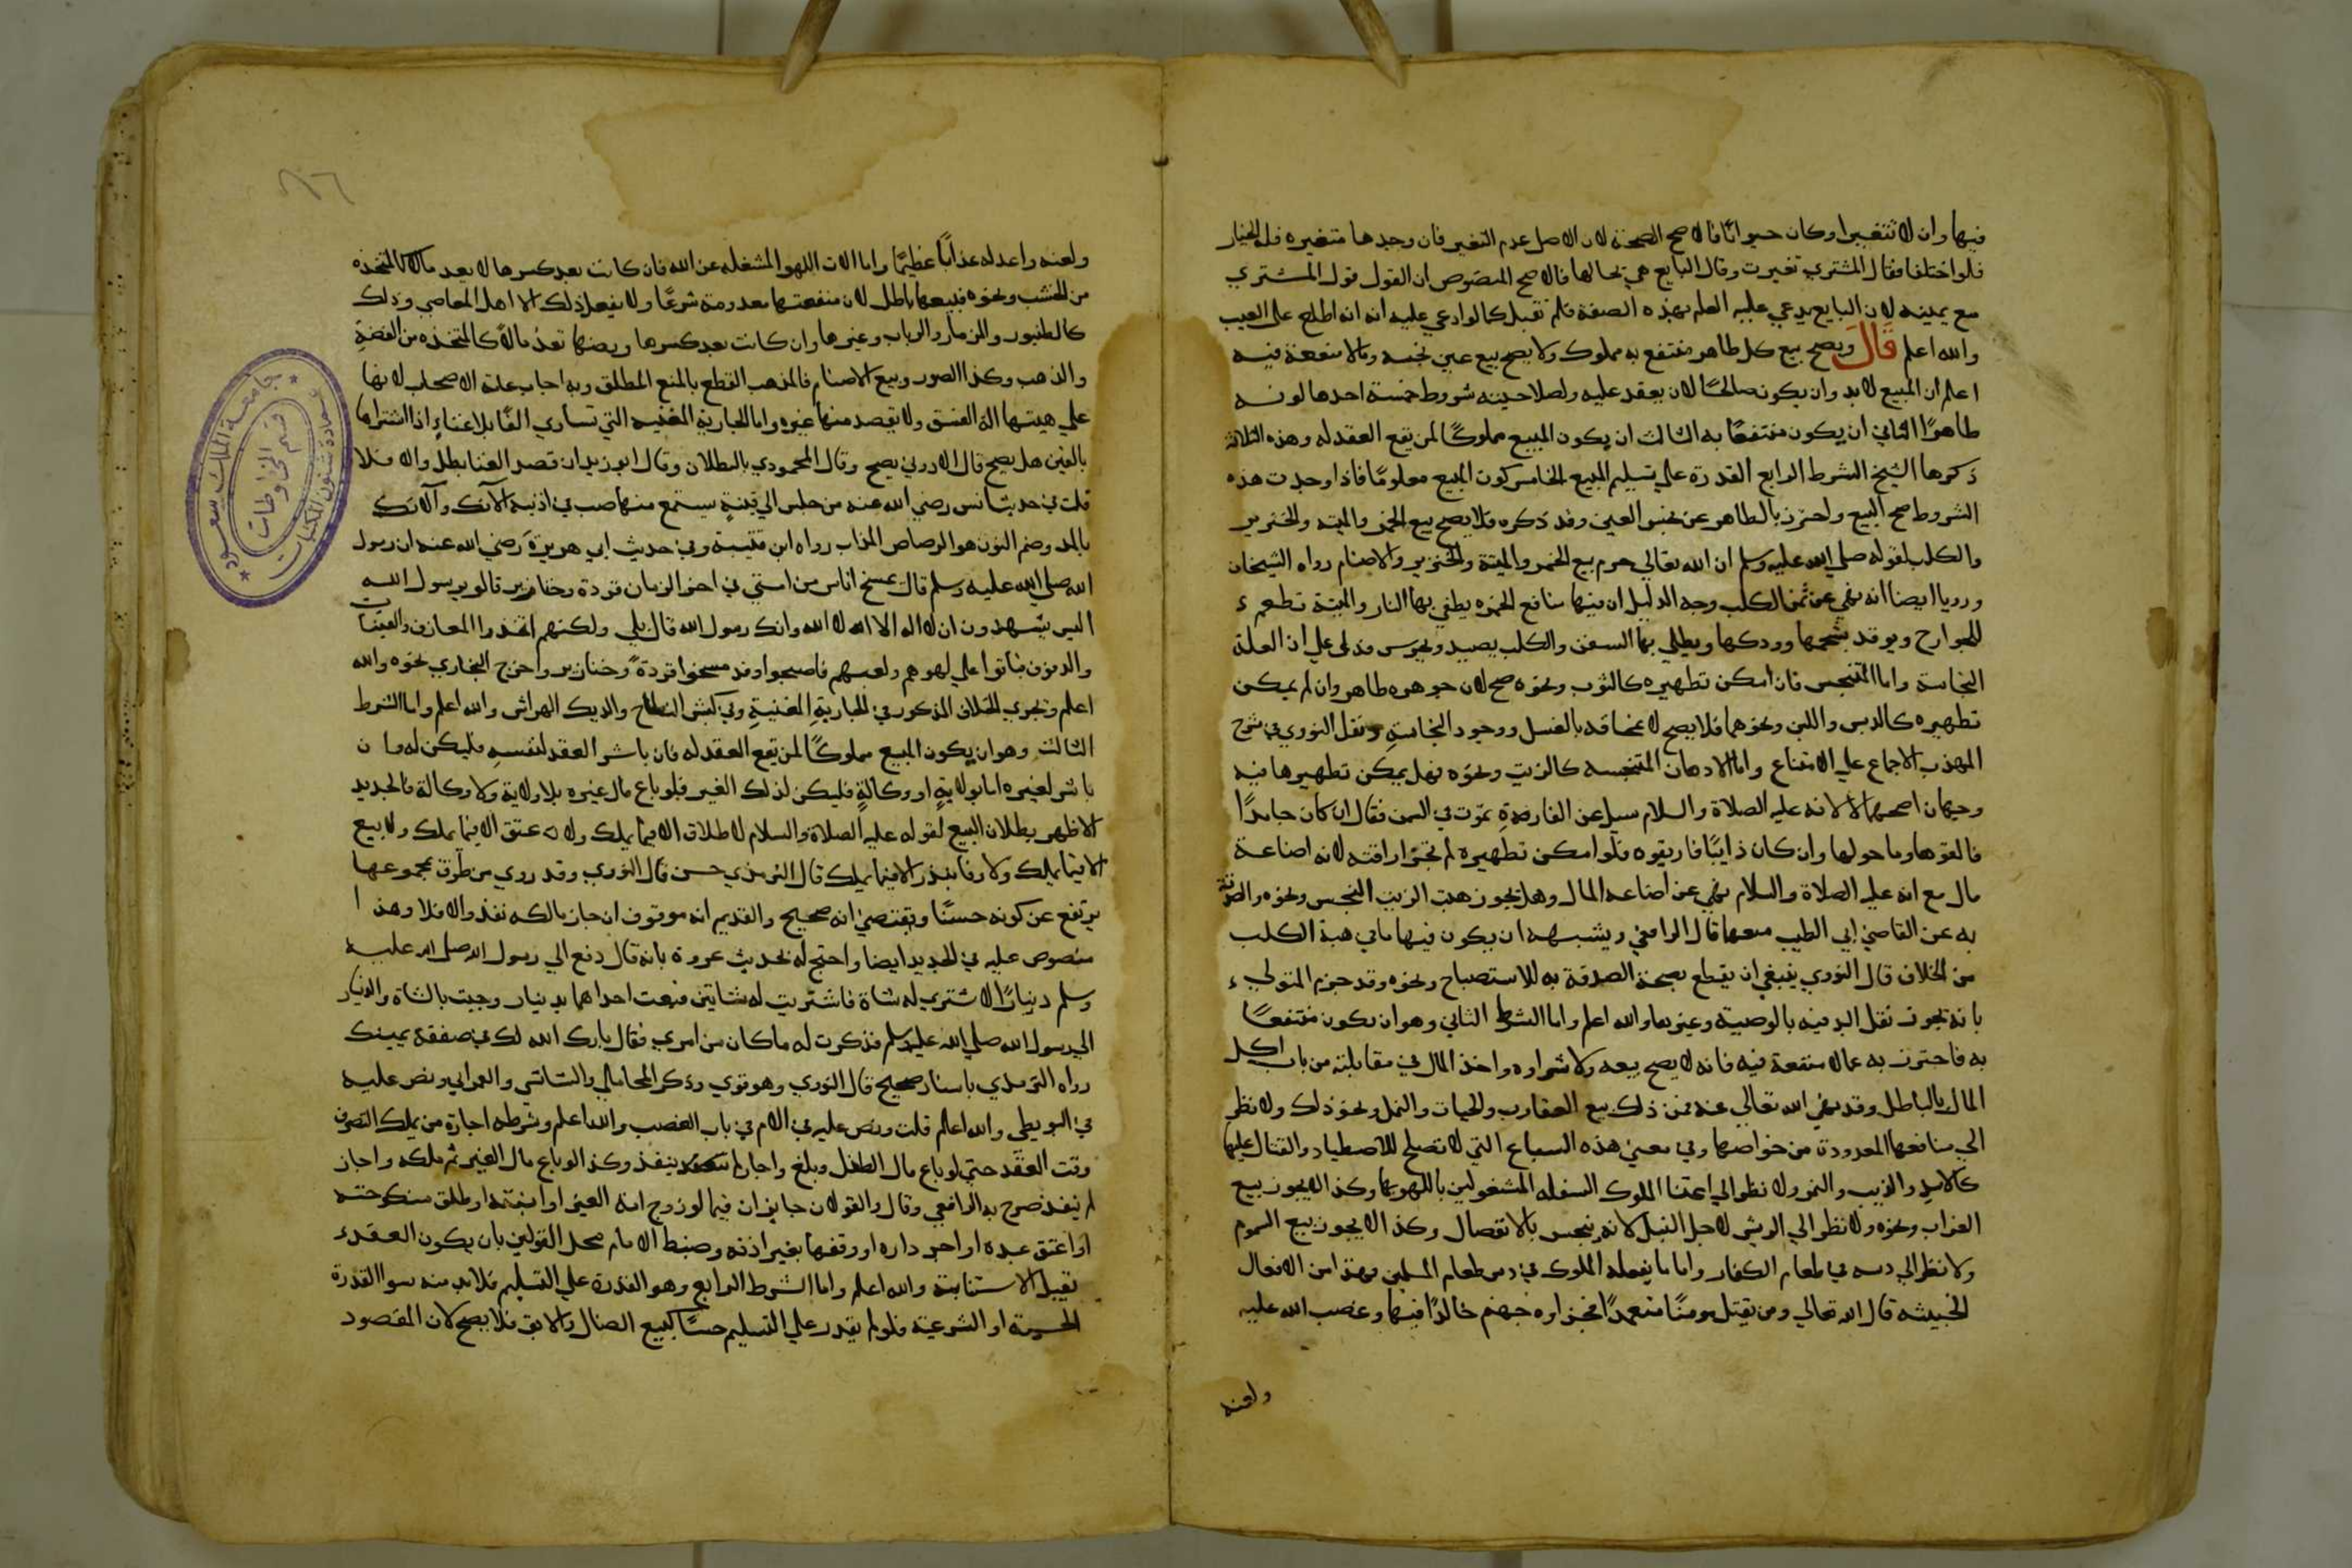 فيها وان لا تتغير او كان حيوانًا فالاصح الصحة لان الاصل عدم التغير فان وجدها متغيره فله الخيار
فلو اختلفا فقال المشتري تغيرت وقال البايع هي بحالها فالاصح المنصوص ان القول قول المشتري
مع يمينه لان البايع يدعي عليه العلم بهذه الصفة فلم تقبل كما لو ادعي عليه انه اطلع علي العيب
والله اعلم قال ويصح بيع كل طاهر منتفع به مملوك ولا يصح بيع عين نجسه ومالا منفعة فيه
اعلم ان المبيع لابد وان يكون صالحًا لان يعقد عليه ولصلاحيته شروط خمسة احدها كونه
طاهرًا الثاني ان يكون منتفعًا به الثالث ان يكون المبيع مملوكًا لمن يقع العقد له وهذه الثلاثة
ذكرها الشيخ الشرط الرابع القدرة علي تسليم المبيع الخامس كون المبيع معلومًا فاذا وجدت هذه
الشروط صح البيع واحترز بالطاهر عن نجس العين وقد ذكره فلا يصح بيع الخمر والميته والخنزير
والكلب لقوله صلي الله عليه وسلم ان الله تعالي حرم بيع الخمر والميتة والخنزير والاصنام رواه الشيخان
ورويا ايضا انه نهي عن ثمن الكلب وجه الدليل ان فيها منافع الخمره يطفي بها النار والميتة تطعم
للجوارح ويوقد بشحمها وودكها ويطلي بها السفن والكلب يصيد ويحرس فدل علي ان العلة
النجاسة واما المتنجس فان امكن تطهيره كالثوب ونحوه صح لان جوهره طاهر وان لم يمكن
تطهيره كالدبس واللبن ونحوهما فلا يصح لا نمحاقه بالغسل ووجود النجاسة ونقل النووي في شرح
المهذب الاجماع علي الامتناع واما الادهان المتنجسه كالزيت ونحوه فهل يمكن تطهيرها فيه
وجهان اصحهما لا لانه عليه الصلاة والسلام سيل عن الفارة تموت في السمن فقال ان كان جامدًا
فالقوها وما حولها وان كان ذايبًا فاريقوه فلو امكن تطهيره لم تجز اراقته لانه اضاعة
مال مع انه عليه الصلاة والسلام نهي عن اضاعة المال وهل يجوز هبة الزيت النجس ونحوه والصدقة
به عن القاضي ابي الطيب منعها قال الرافعي ويشبه ان يكون فيها ما في هبة الكلب
من الخلاف قال النووي ينبغي ان يقطع بصحة الصدقة به للاستصباح ونحوه وقد جزم المتولي
بانه يجوز نقل اليد فيه بالوصية وغيرها والله اعلم واما الشرط الثاني وهو ان يكون منتفعًا
به فاحترز به عما لا منفعة فيه فانه لا يصح بيعه ولا شراوه واخذ المال في مقابلته من باب اكل
المال بالباطل وقد نهي الله تعالي عنه فمن ذلك بيع العقارب والحيات والنمل ونحو ذلك ولا نظر
الي منافعها المعدودة من خواصها وفي معني هذه السباع التي لا تصلح للاصطياد والقتال عليها
كالاسد والذيب والنمر ولا نظر الي اعتنا الملوك السفله المشغولين باللهو بها وكذا لا يجوز بيع
الغراب ونحوه ولا نظر الي الريش لاجل النبل لانه ينجس بالانفصال وكذا لا يجوز بيع السموم
ولا نظر الي دسه في طعام الكفار واما ما يفعله الملوك في دس طعام المسلمين فهذا من الافعال
الخبيثه قال الله تعالي ومن يقتل مومنًا متعمدًا فجزاوه جهنم خالدًا فيها وغضب الله عليه
ولعنه
ولعنه واعد له عذابًا عظيمًا واما الات اللهو المشغله عن الله فان كانت بعد كسرها لا يعد مالا كالمتخذه
من الخشب ونحوه فبيعها باطل لان منفعتها معدومة شرعًا ولا يفعل ذلك الا اهل المعاصي وذلك
كالطنبور والمزمار والرباب وغيرها وان كانت بعد كسرها ورضها تعدُ مالاً كالمتخذه من الفضةِ
والذهب وكذا الصور وبيع الاصنام فالمذهب القطع بالمنع المطلق وبه اجاب عامة الاصحاب لانها
علي هيتها الة الفسق ولا يقصد منها غيره واما الجارية المغنيه التي تساوي الفًا بلا غناءٍ اذا اشتراها
بالفين هل يصح قال الاودني يصح وقال المحمودي بالبطلان وقال ابو زيد ان قصد الغنا بطل والا فلا
قلت في حديث انس رضي الله عنه من جلس الي قينةٍ يستمع منها صب في اذنيه الآنك والآنك
بالمد وضم النون هو الرصاص المذاب رواه ابن قتيبة وفي حديث ابي هريرة رضي الله عنه ان رسول
الله صلي الله عليه وسلم قال يمسخ اناس من امتي في اخر الزمان قردة وخنازير قالو يرسول الله
اليس يشهدون ان لا اله الا الله وانك رسول الله قال بلي ولكنهم اتخذوا المعازف والقينات
والدفوف فباتوا علي لهوهم ولعبهم فاصبحوا وقد مسخوا قردةً وخنازير واخرج البخاري نحوه والله
اعلم ويجري الخلاف المذكور في الجاريةِ المغنيةِ وفي كبش النطاح والديك الهراش والله اعلم واما الشرط
الثالث وهو ان يكون المبيع مملوكًا لمن يقع العقد له فان باشر العقد لنفسهِ فليكن له وان
باشر لغيره اما بولايةٍ او وكالةٍ فليكن لذلك الغير فلو باع مال غيره بلا ولاية ولا وكالة فالجديد
الاظهر بطلان البيع لقوله عليه الصلاة والسلام لا طلاق الا فيما يملك ولا عتق الا فيما يملك ولا بيع
الا فيما يملك ولا وفا بنذر الا فيما يملك قال الترمذي حسن قال النووي وقد روي من طرق بمجموعها
يرتفع عن كونه حسنًا ويقتضي انه صحيح والقديم انه موقوف ان جاز مالكه نفذ والا فلا وهذا
منصوص عليه في الجديد ايضا واحتج له بحديث عروة بانه قال دفع الي رسول الله صلي الله عليه
وسلم دينارًا لاشتري له شاة فاشتريت له شاتين فبعت احداهما بدينار وجيت بالشاة والدينار
الي رسول الله صلي الله عليه وسلم فذكرت له ما كان من امري فقال بارك الله لك في صفقة يمينك
رواه الترمذي باسناد صحيح قال النووي وهو قوي وذكر المحاملي والشاشي والعمراني ونص عليه
في البويطي والله اعلم قلت ونص عليه في الام في باب الغصب والله اعلم وشرطه اجازة من يملك التصرف
وقت العقد حتي لو باع مال الطفل وبلغ واجاز لم ينفذ وكذا لو باع مال الغير ثم ملكه واجاز
لم ينفذ صرح به الرافعي وقال والقولان جاريان فيما لو زوج امة الغير او ابنته او طلق منكوحته
او اعتق عبده او اجر داره او وقفها بغير اذنه وضبط الامام محل القولين بان يكون العقد
يقبل الاستنابة والله اعلم واما الشرط الرابع وهو القدرة علي التسليم فلابد منه سوا القدرة
الحسية او الشرعية فلو لم يقدر علي التسليم حسًا كبيع الضال والابق فلا يصح لان المقصود
جامعة الملك سعود
عمادة شئون المكتبات
قسم المخطوطات